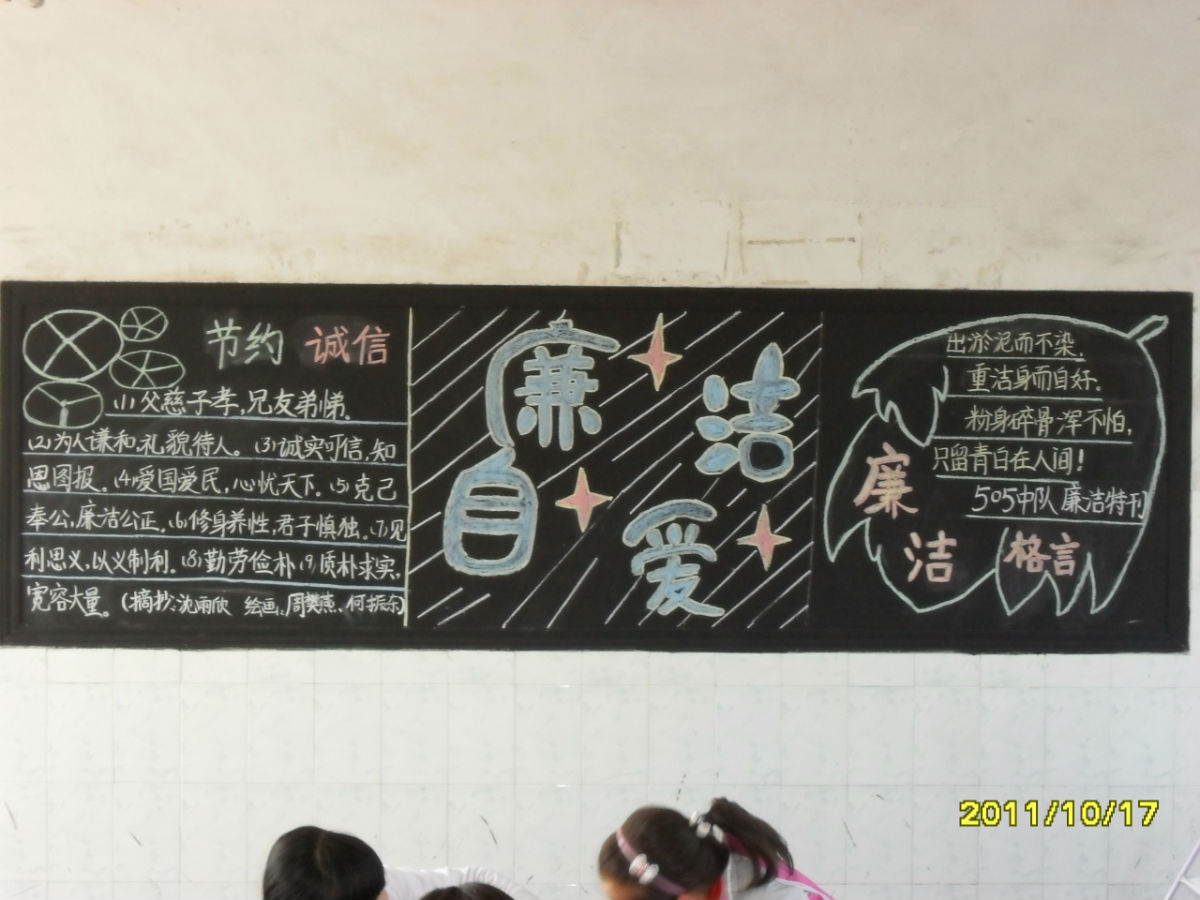 节约 诚信
(1)父慈子孝,兄友弟悌。
(2)为人谦和,礼貌待人。(3)诚实可信,知
恩图报。(4)爱国爱民,心忧天下。(5)克己
奉公,廉洁公正。(6)修身养性,君子慎独。(7)见
利思义,以义制利。(8)勤劳俭朴(9)质朴求实,
宽容大量。(摘抄:沈雨欣 绘画:周樊燕、何振东)
廉洁
自爱
出淤泥而不染,
重洁身而自好。
粉身碎骨浑不怕,
只留青白在人间!
505中队 廉洁特刊
廉洁格言
2011/10/17